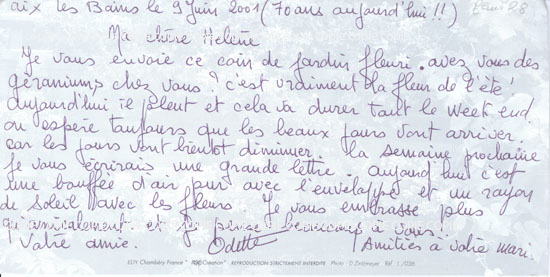 aix les Bains le 9 Juin 2001 (70 ans aujourd'hui !!)
Ma chère Helene
Je vous envoie ce coin de jardin fleuri. avez vous des
géraniums chez vous? c'est vraiment la fleur de l'été
aujourd'hui il pleut et cela va durer tout le week end
on espère toujours que les beaux jours vont arriver
car les jours vont bientot diminuer. la semaine prochaine
je vous écrirais une grande lettre. aujourd'hui c'est
une bouffée d'air pur avec l'enveloppe et un rayon
de soleil avec les fleurs. Je vous embrasse plus
qu'amicalement et je pense beaucoup à vous.
Votre amie. Odette Amitiés à votre mari.
EDY Chambéry France REPRODUCTION STRICTEMENT INTERDITE Photo : D. Zintzmeyer Réf.